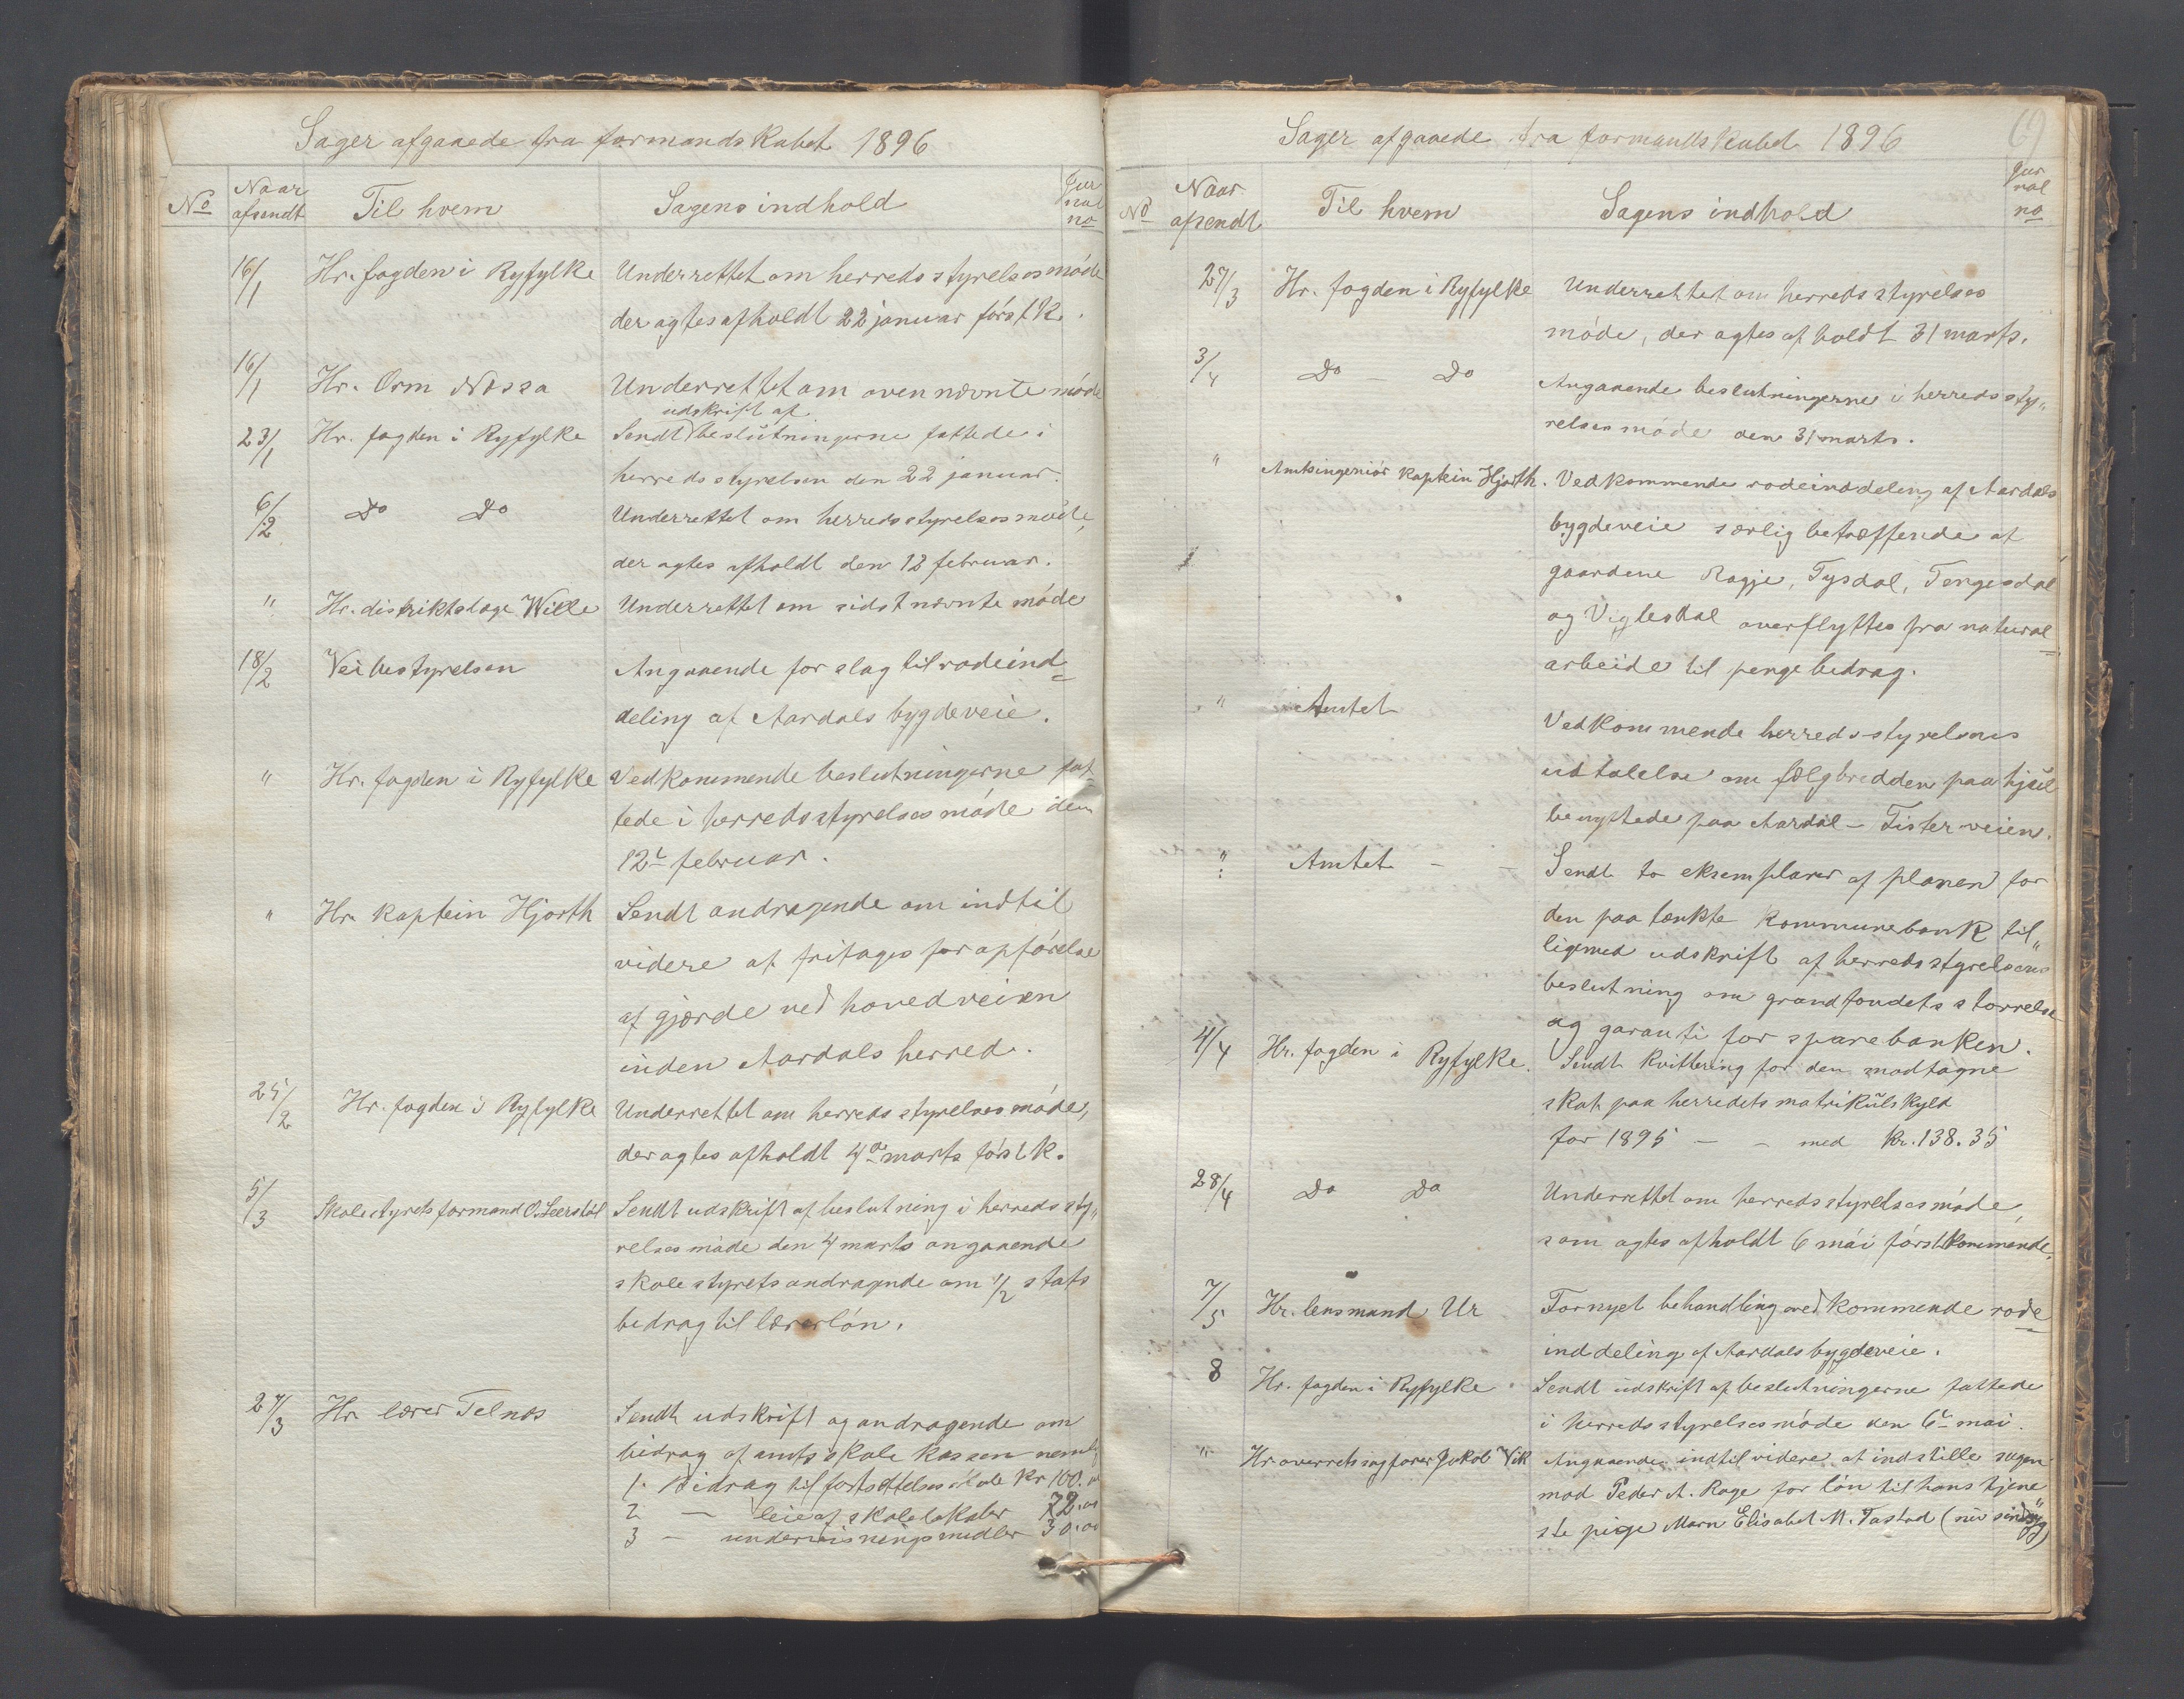 Sager afgaaede fra formandskabet 1896
No
Naar afsendt
Til hvem
Sagens indhold
Jurnal no
16/1 Hr. fogden i Ryfylke Underrettet om herredsstyrelsesmøde
der agtes afholdt 22 januar førstk.
16/1 Hr. Orm Nessa Underrettet om ovennevnte møde
udskrift af
23/1 Hr. fogden i Ryfylke Sendt beslutningerne fattede i
herredsstyrelsen den 22 januar.
6/2 Do Do Underrettet om herredsstyrelsesmøde,
der agtes afholdt den 12 februar.
" Hr. distriktslæge Wille Underrettet om sidstnævnte møde
18/2 Veibestyrelsen Angaaende forslag til rodeind=
deling af Aardals bygdeveie.
" Hr. fogden i Ryfylke Vedkommende beslutningerne fat-
tede i herredsstyrelsesmøde den
12te februar.
" Hr. kaptein Hjorth Sendt andragende om indtil
videre at fritages for opførelse
af gjærde ved hovedveien
inden Aardals herred.
25/2 Hr. fogden i Ryfylke Underrettet om herredsstyrelsesmøde,
der agtes afholdt 4de marts førstk.
5/3 Skolestyrets formand O. Leerstøl Sendt udskrift af beslutning i herredssty„
relsesmøde den 4 marts angaaende
skolestyrets andragende om 1/2 stats
bedrag til lærerløn.
27/3 Hr. lærer Telnæs Sendt udskrift og andragende om
bidrag af amtsskolekassen neml.
1. Bidrag til fortsættelsesskole Kr 100.
2 — leie af skolelokaler 72.00
3 — undervisningsmidler 30.00
Sager afgaaede fra formandskabet 1896
69
No
Naar afsendt
Til hvem
Sagens indhold
Jurnal no
27/3 Hr. fogden i Ryfylke Underrettet om herredsstyrelses
møde, der agtes afholdt 31 marts.
3/4 Do - Do Angaaende beslutningerne i herredssty„
relsesmøde den 31 marts.
" Amtsingeniør kaptein Hjorth. Vedkommende rodeinddeling af Aardals
bygdeveie særlig betræffende at
gaardene Ragje, Tysdal, Tengesdal
og Viglesdal overflyttes fra natural=
arbeide til pengebedrag.
" Amtet Vedkommende herredsstyrelsens
udtalelse om fælgbredden paa hjul
benyttede paa Aardal - Fister veien.
" Amtet - - Sendt to eksemplarer af planen for
den paatænkte kommunebank til„
ligemed udskrift af herredsstyrelsens
beslutning om grundfondets størrelse
og garanti for sparebanken.
4/4 Hr. fogden i Ryfylke. Sendt kvittering for den modtagne
skat paa herredets matrikülskyld
for 1895 — - med Kr. 138.35
28/4 Do Do Underrettet om herredsstyrelsesmøde,
som agtes afholdt 6 mai førstkommende.
7/5 Hr. lensmand Ur Fornyet behandling vedkommende rode=
inddeling af Aardals bygdeveie.
8 Hr. fogden i Ryfylke Sendt udskrift af beslutningerne fattede
i herredsstyrelsesmøde den 6te mai.
" Hr. overretssagfører Jakob Vik Angaaende indtil videre at indstille sagen
mod Peder A. Rage for løn til hans tjene„
ste pige Maren Elisabet M. Tastad (nu